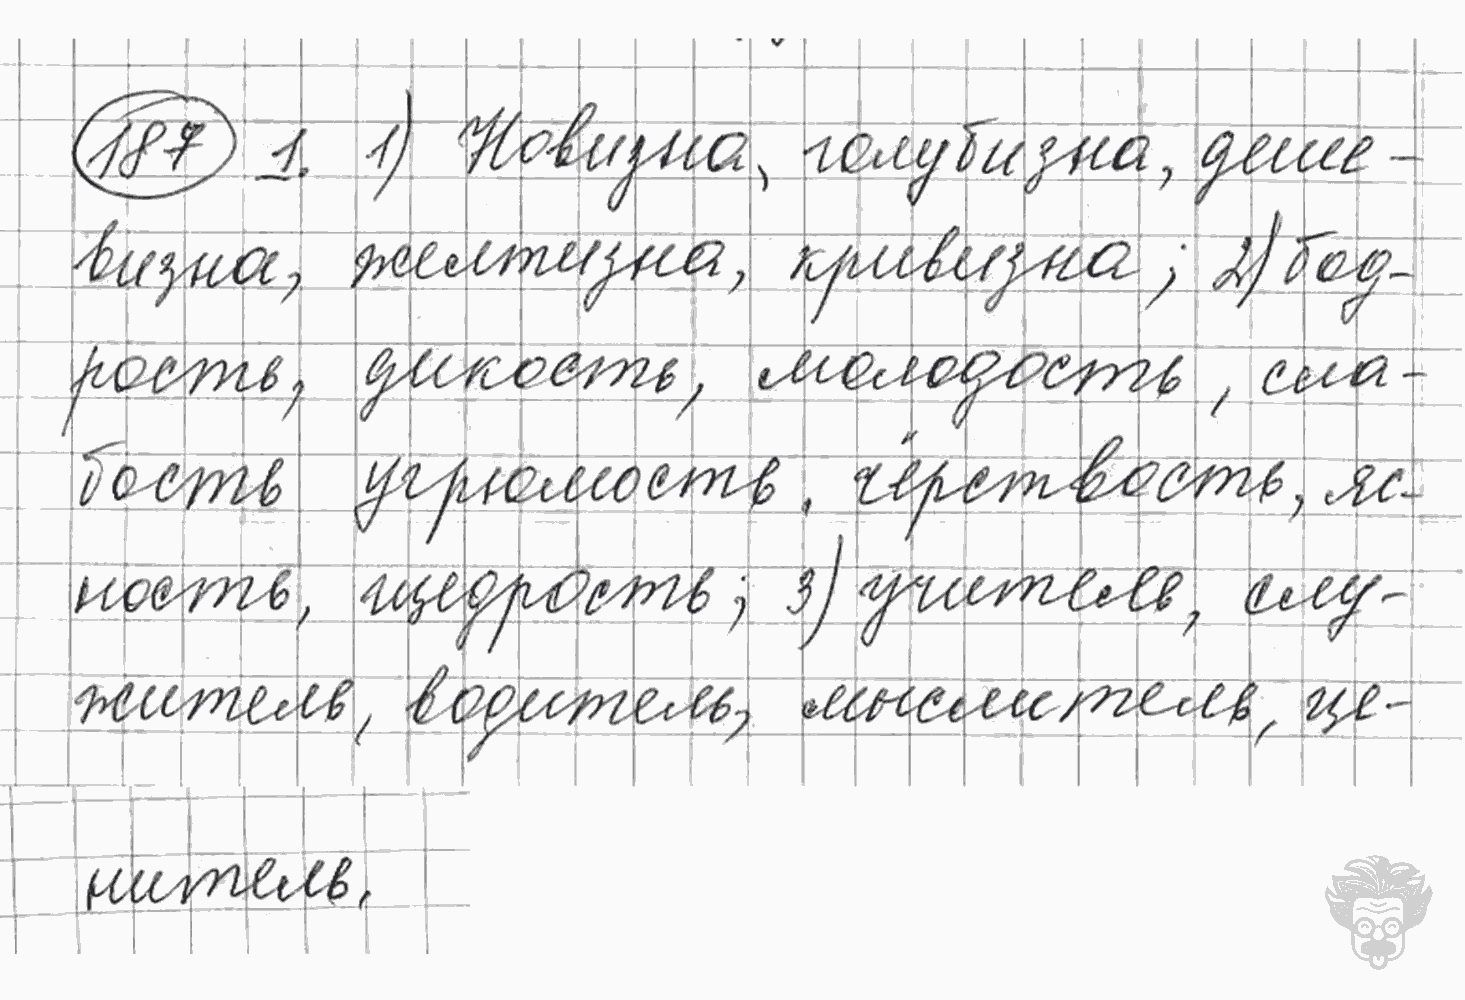 187 1. 1) Новизна, голубизна, деше-
визна, желтизна, кривизна; 2) бод-
рость, дикость, молодость, сла-
бость угрюмость, чёрствость, яс-
ность, щедрость; 3) учитель, слу-
житель, водитель, мыслитель, це-
нитель.